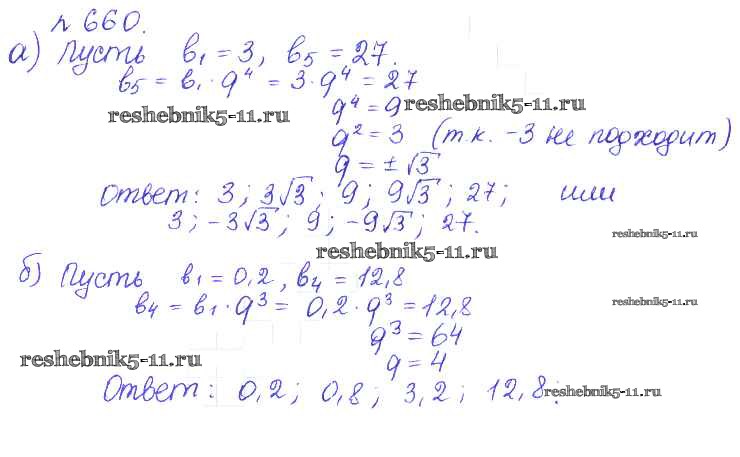 № 660.
а) Пусть b₁ = 3, b₅ = 27.
b₅ = b₁ · q⁴ = 3 · q⁴ = 27
reshebnik5-11.ru q⁴ = 9 reshebnik5-11.ru
q² = 3 (т.к. -3 не подходит)
q = ±√3
Ответ: 3; 3√3; 9; 9√3; 27; или
3; -3√3; 9; -9√3; 27.
reshebnik5-11.ru
reshebnik5-11.ru
б) Пусть b₁ = 0,2, b₄ = 12,8
b₄ = b₁ · q³ = 0,2 · q³ = 12,8
reshebnik5-11.ru
q³ = 64
reshebnik5-11.ru
q = 4
Ответ: 0,2; 0,8; 3,2; 12,8.
reshebnik5-11.ru